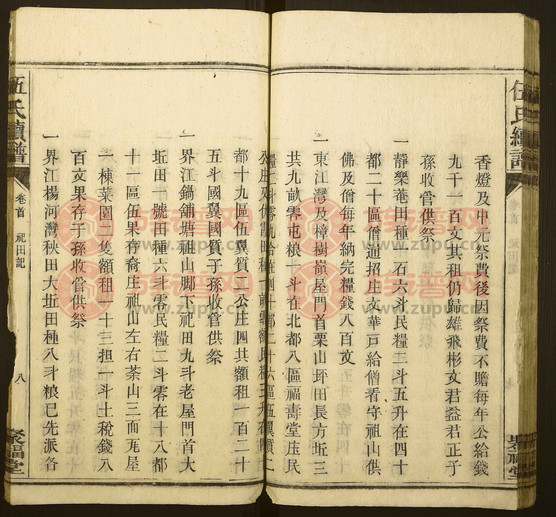 伍氏續譜
卷首 祀田記
聚福堂
香燈及中元祭費後因祭費不贍每年公給錢
九千一百文其租仍歸雄飛彬文君益君正子
孫收管供祭
一靜樂菴田種一石六斗民糧二斗五升在四十
都二十區僧通招庄文華戸給僧看守祖山供
佛及僧每年納完糧錢八百文
一東江灣及樟樹嶺屋門首栗山坪田長方坵三
共九畝零屯粮一斗在北都八區福壽堂庄民
都十九區伍翼質二公庄四共額租一百二十
五斗國翼國質子孫收管供祭
一界江鍋鋪塘祖山脚下祀田九斗老屋門首大
坵田一號田種六斗零民糧二斗零在十八都
十一區伍果存裔庄祖山左右茶山三面瓦屋
一棟菜園二隻額租一十三担一斗土稅錢八
百文果存子孫收管供祭
一界江楊河灣秧田大坵田種八斗粮已先派各
伍氏續譜
卷首 祀田記
八
聚福堂
家譜搜
www.zupu.cn